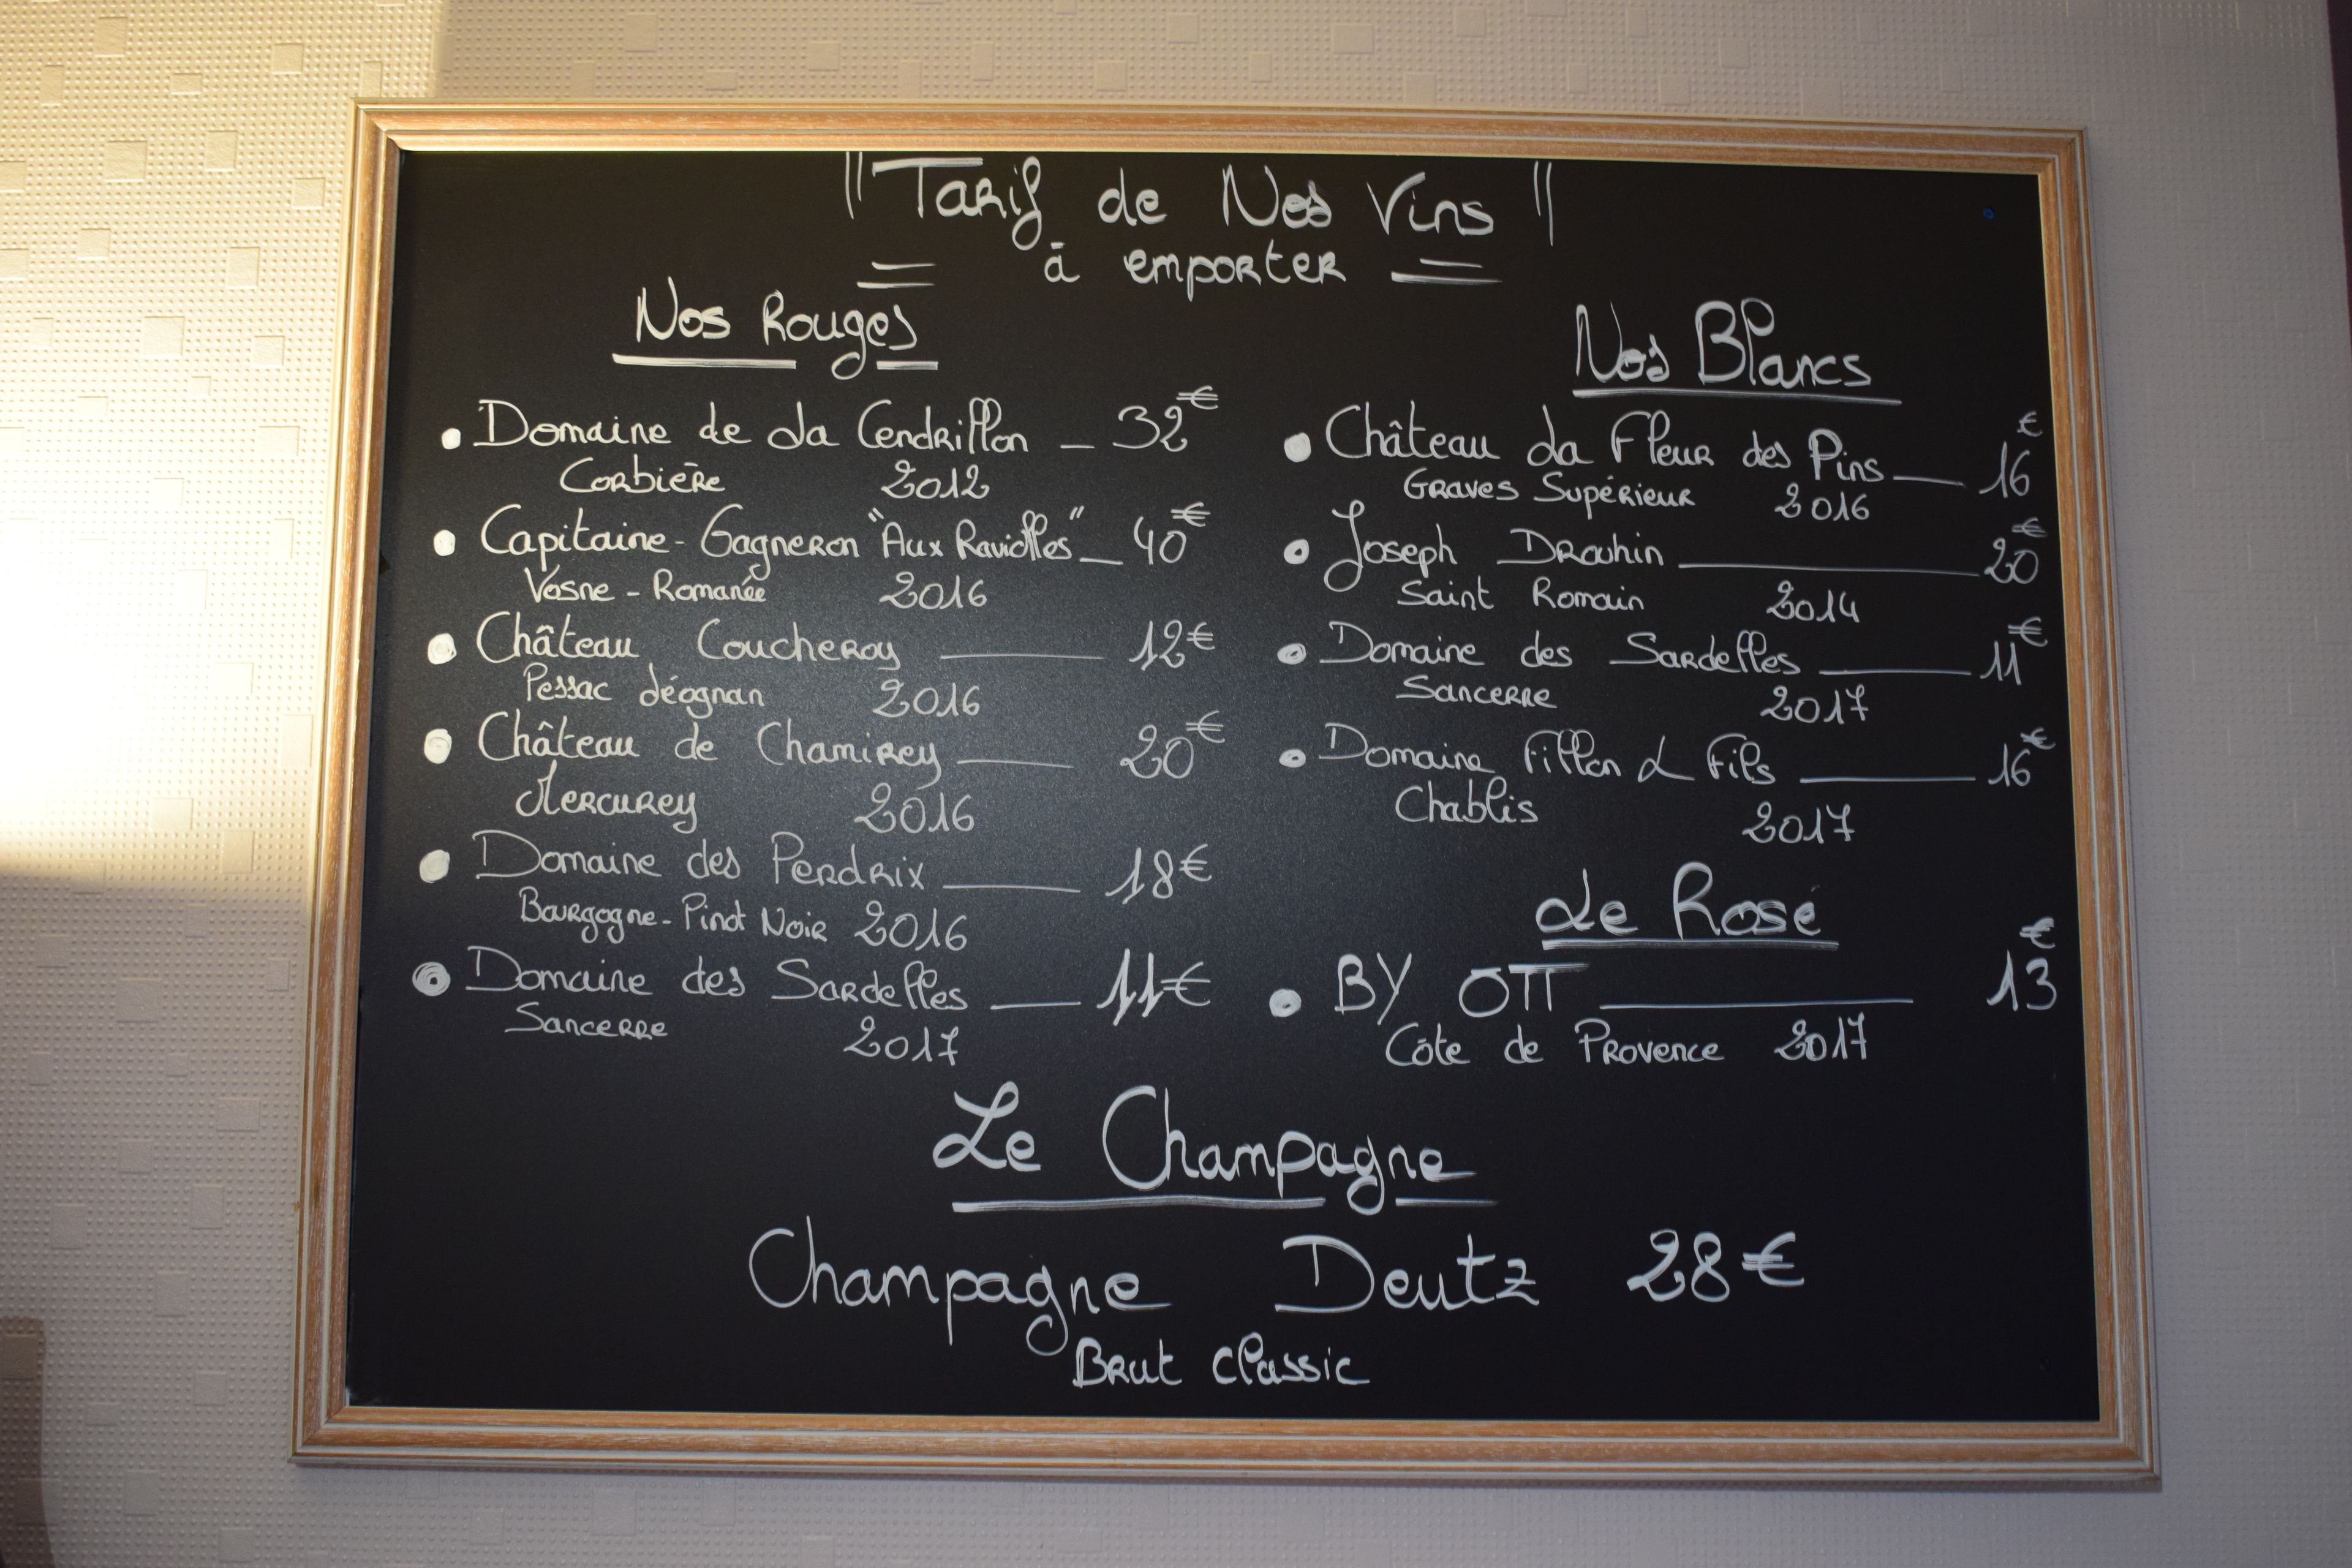 "Tarif de Nos Vins"
à emporter
Nos Rouges
• Domaine de La Cendrillon — 32€
Corbière 2012
• Capitaine-Gagneron "Aux Raviolles" — 40€
Vosne-Romanée 2016
• Château Coucheroy — 12€
Pessac Léognan 2016
• Château de Chamirey — 20€
Mercurey 2016
• Domaine des Perdrix — 18€
Bourgogne-Pinot Noir 2016
• Domaine des Sardelles — 11€
Sancerre 2017
Nos Blancs
• Château La Fleur des Pins — 16€
Graves Supérieur 2016
• Joseph Drouhin — 20€
Saint Romain 2014
• Domaine des Sardelles — 11€
Sancerre 2017
• Domaine Fillon & Fils — 16€
Chablis 2017
Le Rosé
• BY OTT — 13€
Côte de Provence 2017
Le Champagne
Champagne Deutz 28€
Brut Classic